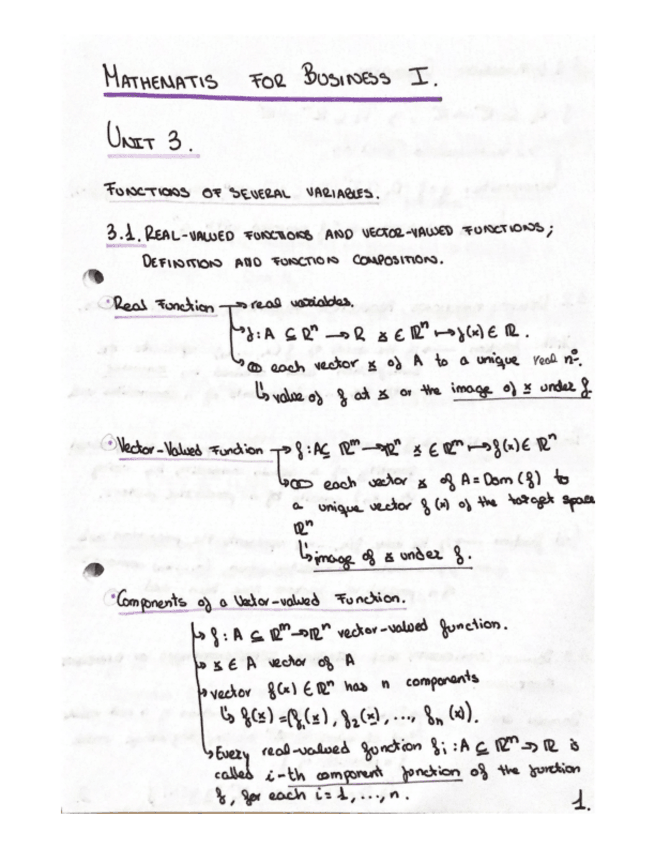 MATHEMATIS FOR BUSINESS I.
UNIT 3.
FUNCTIONS OF SEVERAL VARIABLES.
3.1. REAL-VALUED FUNCTIONS AND VECTOR-VALUED FUNCTIONS;
DEFINITION AND FUNCTION COMPOSITION.
Real Function → real variables.
↳ f: A ⊆ ℝⁿ → ℝ x ∈ ℝⁿ ↦ f(x) ∈ ℝ.
each vector x of A to a unique real nº.
↳ value of f at x or the image of x under f
Vector-Valued Function → f: A ⊆ ℝᵐ → ℝⁿ x ∈ ℝᵐ ↦ f(x) ∈ ℝⁿ
each vector x of A = Dom (f) to
a unique vector f(x) of the target space
ℝⁿ
↳ image of x under f.
Components of a Vector-valued Function.
↳ f: A ⊆ ℝᵐ → ℝⁿ vector-valued function.
↳ x ∈ A vector of A
↳ vector f(x) ∈ ℝⁿ has n components
↳ f(x) = (f₁(x), f₂(x), ..., fₙ(x)).
↳ Every real-valued function fᵢ: A ⊆ ℝᵐ → ℝ is
called i-th component function of the function
f, for each i = 1, ..., n.
1.